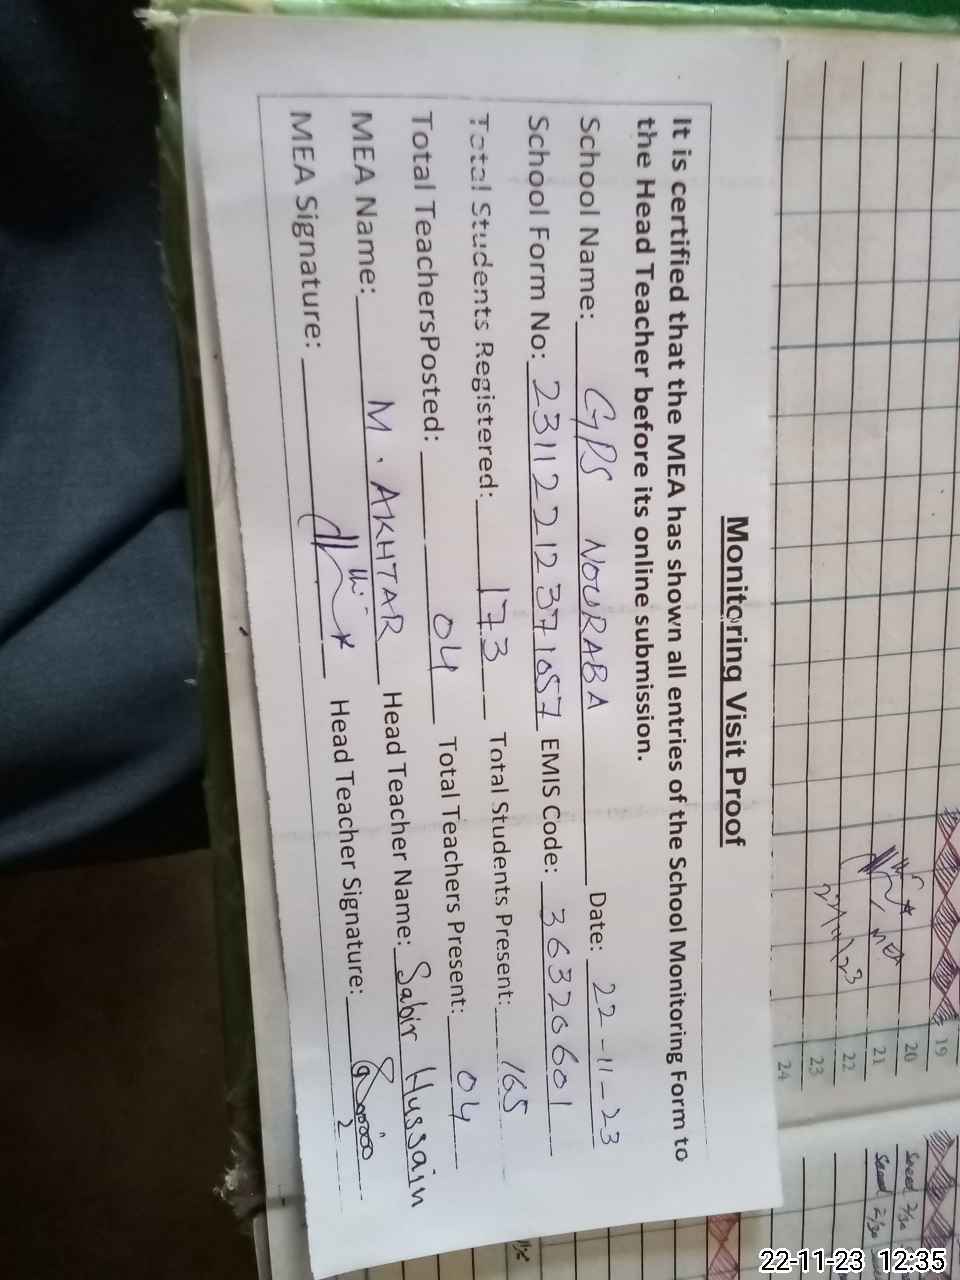 Monitoring Visit Proof
It is certified that the MEA has shown all entries of the School Monitoring Form to
the Head Teacher before its online submission.
School Name: GPS NOURABA Date: 22-11-23
School Form No: 23112212371057 EMIS Code: 36320601
Total Students Registered: 173 Total Students Present: 165
Total TeachersPosted: 04 Total Teachers Present: 04
MEA Name: M. AKHTAR Head Teacher Name: Sabir Hussain
MEA Signature: Head Teacher Signature:
19
20
21
22
23
24
MEA
22-11-23 12:35